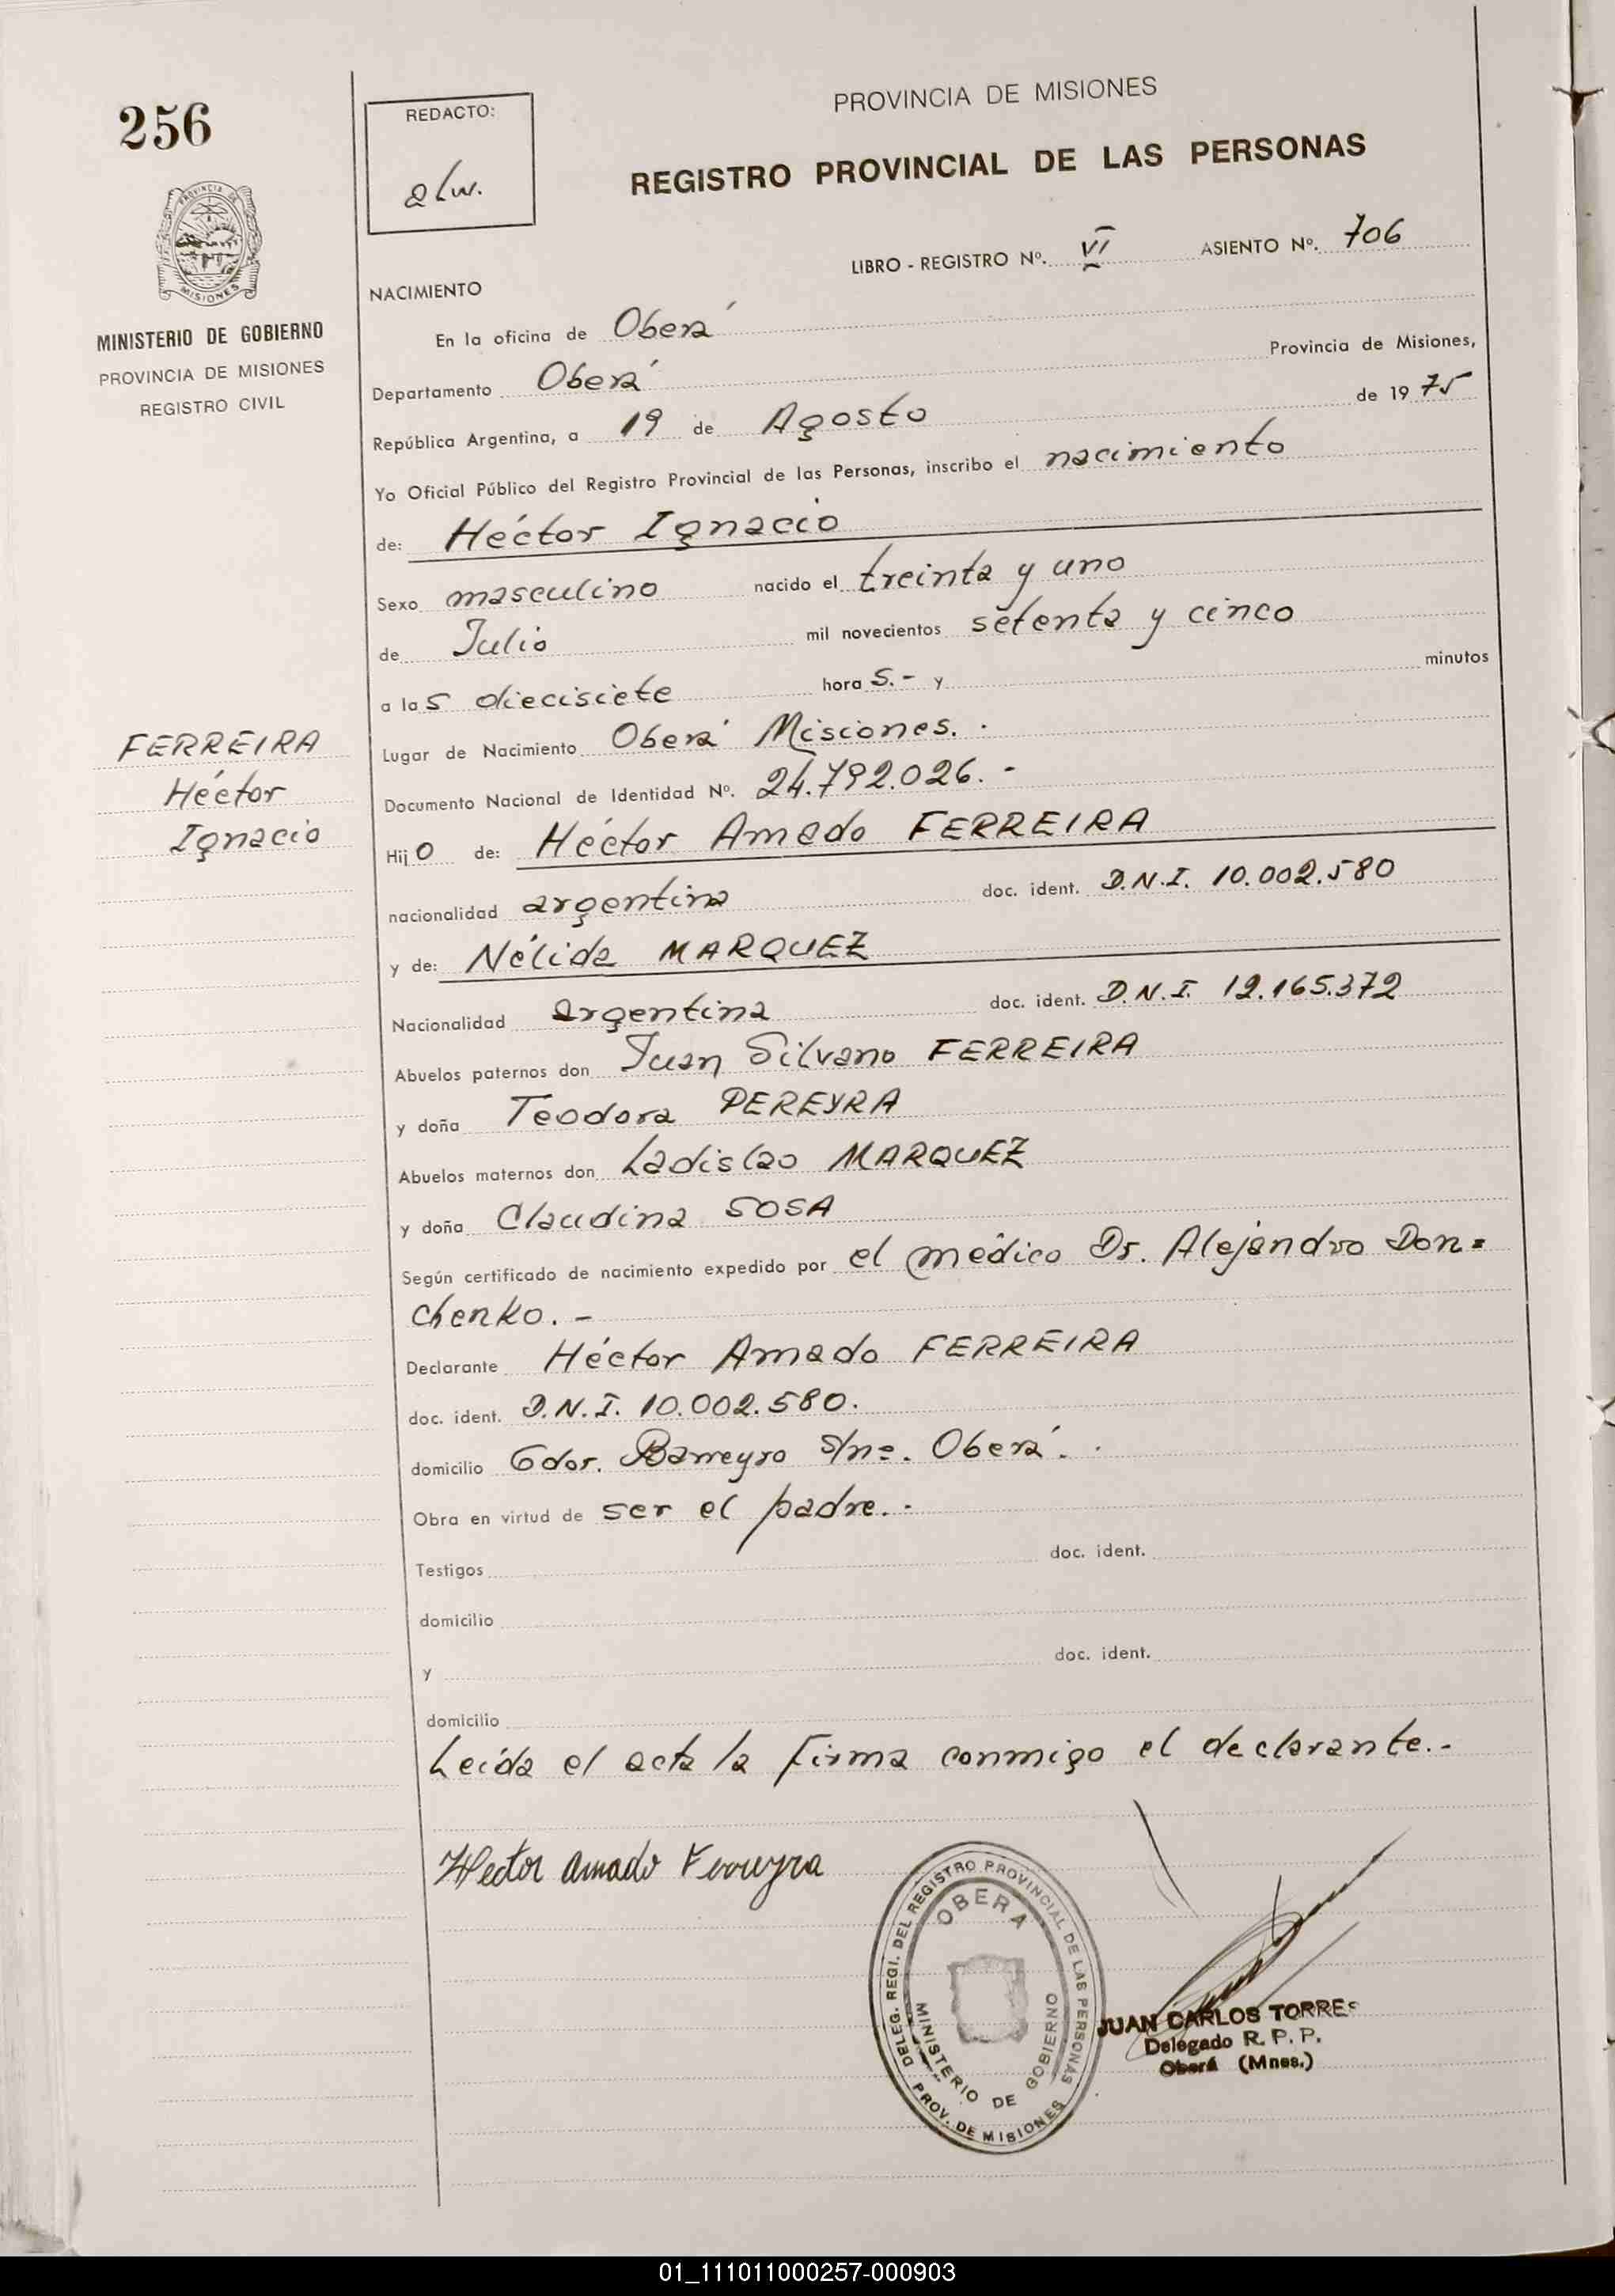 256
REDACTO:
alw.
PROVINCIA DE MISIONES
REGISTRO PROVINCIAL DE LAS PERSONAS
LIBRO - REGISTRO Nº. VI ASIENTO Nº. 706
PROVINCIA DE MISIONES
MINISTERIO DE GOBIERNO
PROVINCIA DE MISIONES
REGISTRO CIVIL
NACIMIENTO
En la oficina de Oberá
Departamento Oberá Provincia de Misiones,
República Argentina, a 19 de Agosto de 1975
Yo Oficial Público del Registro Provincial de las Personas, inscribo el nacimiento
de: Héctor Ignacio
Sexo masculino nacido el treinta y uno
de Julio mil novecientos setenta y cinco
a las diecisiete hora s.- y minutos
Lugar de Nacimiento Oberá Misiones.-
Documento Nacional de Identidad Nº. 24.792.026.-
FERREIRA
Héctor
Ignacio
Hijo de: Héctor Amado FERREIRA
nacionalidad argentina doc. ident. D.N.I. 10.002.580
y de: Nélida MARQUEZ
Nacionalidad argentina doc. ident. D.N.I. 12.165.372
Abuelos paternos don Juan Silvano FERREIRA
y doña Teodora PEREYRA
Abuelos maternos don Ladislao MARQUEZ
y doña Claudina SOSA
Según certificado de nacimiento expedido por el médico Dr. Alejandro Don=
chenko.-
Declarante Héctor Amado FERREIRA
doc. ident. D.N.I. 10.002.580.
domicilio Gdor. Barreyro s/nº. Oberá.-
Obra en virtud de ser el padre.-
Testigos doc. ident.
domicilio
y doc. ident.
domicilio
Leída el acta la firma conmigo el declarante.-
Hector Amado Ferreyra
DELEG. REGI. DEL REGISTRO PROVINCIAL DE LAS PERSONAS
OBERA
MINISTERIO DE GOBIERNO
PROV. DE MISIONES
JUAN CARLOS TORRES
Delegado R. P. P.
Oberá (Mnes.)
01_111011000257-000903